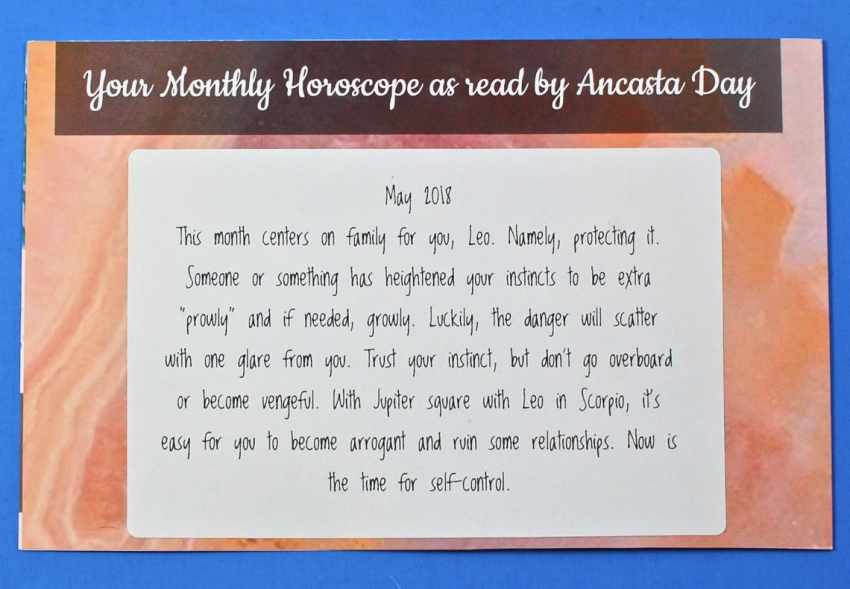 Your Monthly Horoscope as read by Ancasta Day
May 2018
This month centers on family for you, Leo. Namely, protecting it.
Someone or something has heightened your instincts to be extra
"prowly" and if needed, growly. Luckily, the danger will scatter
with one glare from you. Trust your instinct, but don't go overboard
or become vengeful. With Jupiter square with Leo in Scorpio, it's
easy for you to become arrogant and ruin some relationships. Now is
the time for self-control.